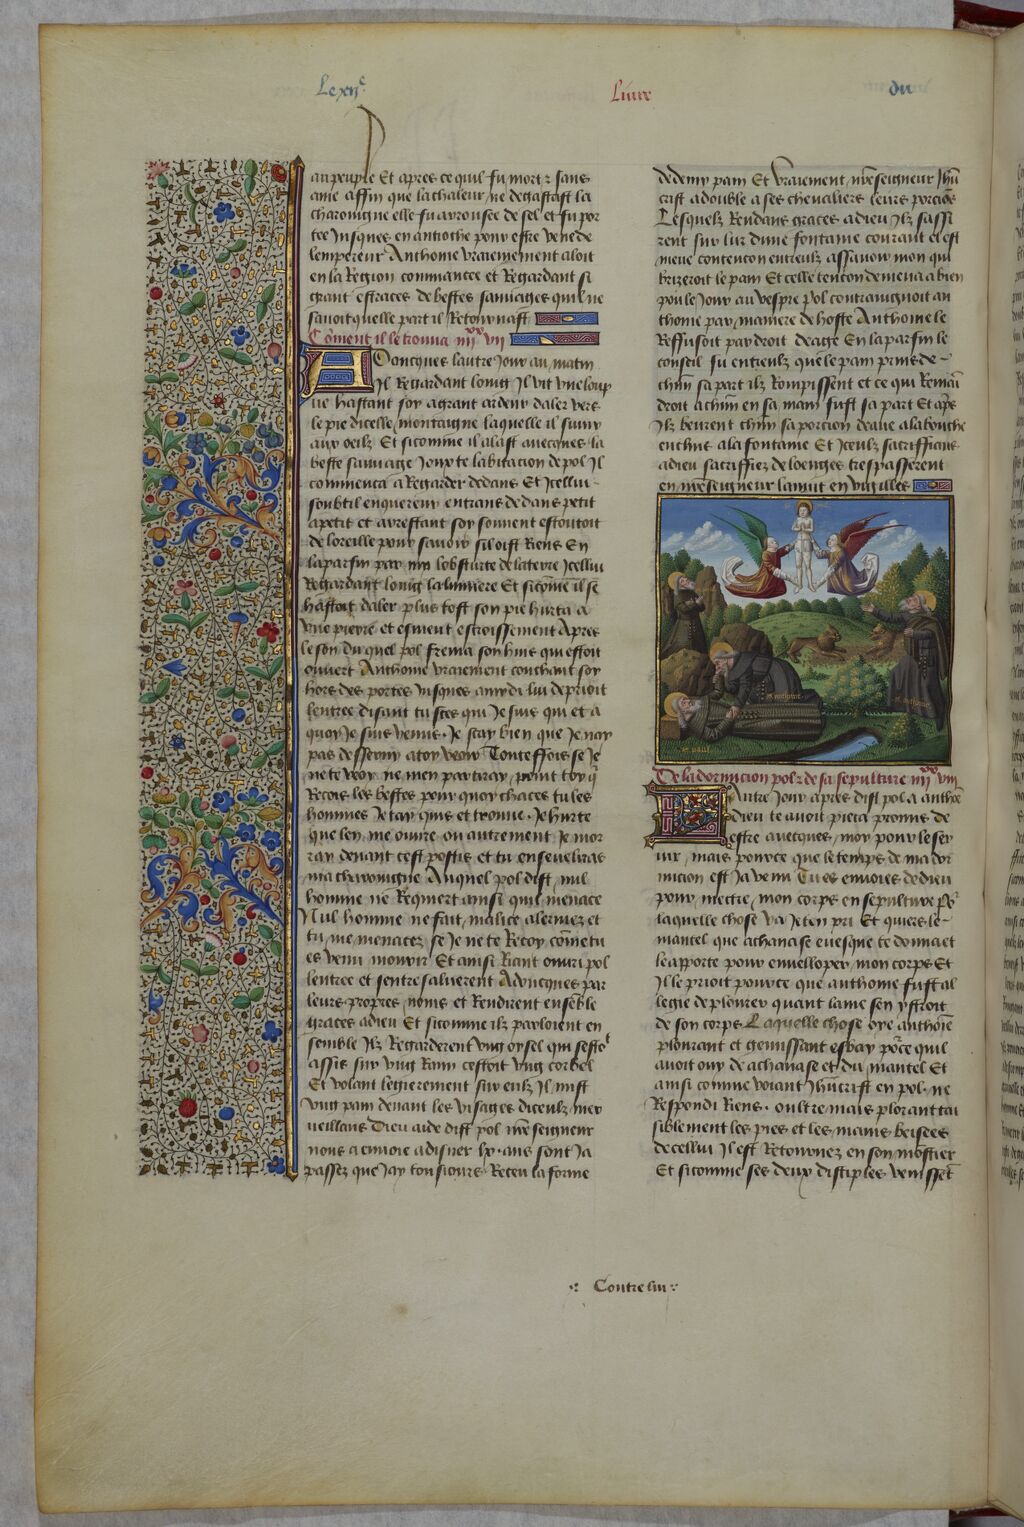 Le xiie Livre du
au peuple Et apres ce quil fu mort z sans
ame affin que la chaleur ne degastast la
charoingne elle fu arrousee de sel et fu por
tee Jusques en antioche pour estre venue de
lempereur Anthoine vraiement aloit
en la Region commancee et Regardant si
grant estraces de bestes sauvages quil ne
savoit quelle part il Retournast
Coment il le trouva iiijxx vij
Adoncques lautre Jour au matin
Il Regardant loing Il vit une loup
ue hastant soy a grant ardeur daler vers
le pie dicelle montaigne laquelle il suiuy
aux oeilz Et si comme il alast avecques la
beste sauvage Joux te labitacion de pol Il
commenca a Regarder dedans Et Icellui
soubtil enquereur entrans dedans petit
a petit et arrestant soy souvent escoutoit
de loreille pour savoir sil oist Riens En
la parfin par my lobscurte de la terre Icellui
Regardant loing la lumiere Et si come il se
hastoit daler plus tost son pie hurta a
une pierre et esmeut estroissement Apres
le son du quel pol frema son huis qui estoit
ouvert Anthoine vraiement couchant soy
hors des portes Jusques a mydi lui deprioit
lentree disant tu sces qui Je suis qui et a
quoy Je suis venus. Je scay bien que Je nay
pas desservy a toy veoir Toutesfois se Je
ne te voy ne men partiray point toy q
Recois les bestes pour quoy chaces tu les
hommes Je tay quis et trouve. Je hurte
que len me ouvre ou autrement Je mor
ray devant cest postis et tu enseveliras
ma charoingne Auquel pol dist nul
homme ne Requiert ainsi qui menace
Nul homme ne fait malice a lermez et
tu me menacez se Je ne te Recoy come tu
es venu mourir Et ainsi Riant ouvri pol
lentree et sentresaluerent Adoncques par
leurs propres noms et Rendirent enseble
graces a dieu Et si comme ilz parloient en
semble Ilz Regarderent ung oysel qui sesto
assis sur ung Ram cestoit ung corbel
Et volant legierement sur eulz Il mist
ung pain devant les visages diceulz mer
veillans Dieu aide dist pol nre seigneur
nous a envoie a disner lx. ans sont Ja
passez que Jay tousiours Receu la forme
de demy pain Et vraiement nre seigneur Jhu
crist a double a ses chevaliers leurs porcios
Lesquelz Rendans graces a dieu Ilz sassi
rent sur lur dune fontaine courant et est
meue contencon entreulz assavoir mon qui
brizeroit le pain Et celle tencon demena a bien
pou le Jour au vespre Pol contraingnoit an
thoine par maniere de hoste Anthoine le
Reffusoit par droit deage En la parfin le
conseil fu entreulz que le pain prins de
chun sa part ilz Rompissent et ce qui Remai
droit a chun en sa main fust sa part Et aps
Ilz beurent chun sa porcion deaue a la bouche
encline a la fontaine Et Iceulz sacrifficans
a dieu sacriffiez de loenges trespasserent
en nre seigneur la nuit en vigilles
st anthoine
st anthoine
st paul
De la dormicion pol z de sa sepulture iiijxx viij
Lautre Jour apres dist pol a anthoe
dieu te avoit pieca promis de
estre avecques moy pour le ser
vir mais pource que le temps de ma dor
micion est Ja venu Tu es envoies de dieu
pour mectre mon corps en sepulture po
laquelle chose va Je ten pri Et quiers le
mantel que athanase evesque te donna et
le apporte pour envelloper mon corps Et
Il le prioit pource que anthoine fust al
legie de plourer quant lame sen ystroit
de son corps Laquelle chose oye anthoie
plourant et gemissant esbay poce quil
avoit ouy de achanase et du mantel Et
ainsi comme voiant Jhucrist en pol ne
Respondi Riens. oultre mais plorant tai
siblement les pies et les mains beisees
de cellui Il est Retournez en son mostier
Et si comme ses deux disciples venisset
Contre lui